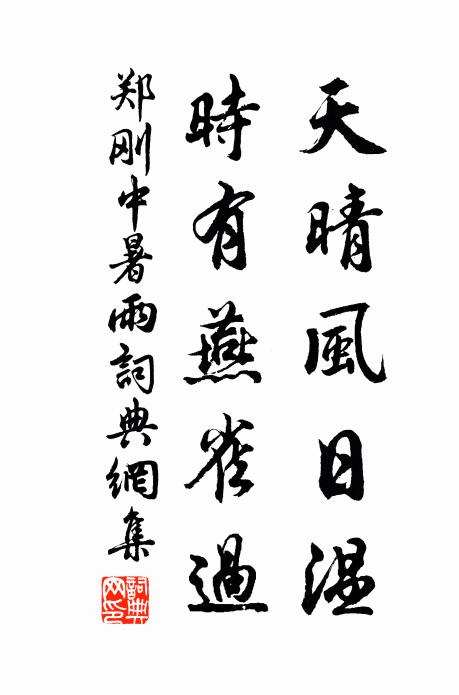 天晴風日温
時有燕雀過
郑刚中暑雨詞典網集
詞典网印